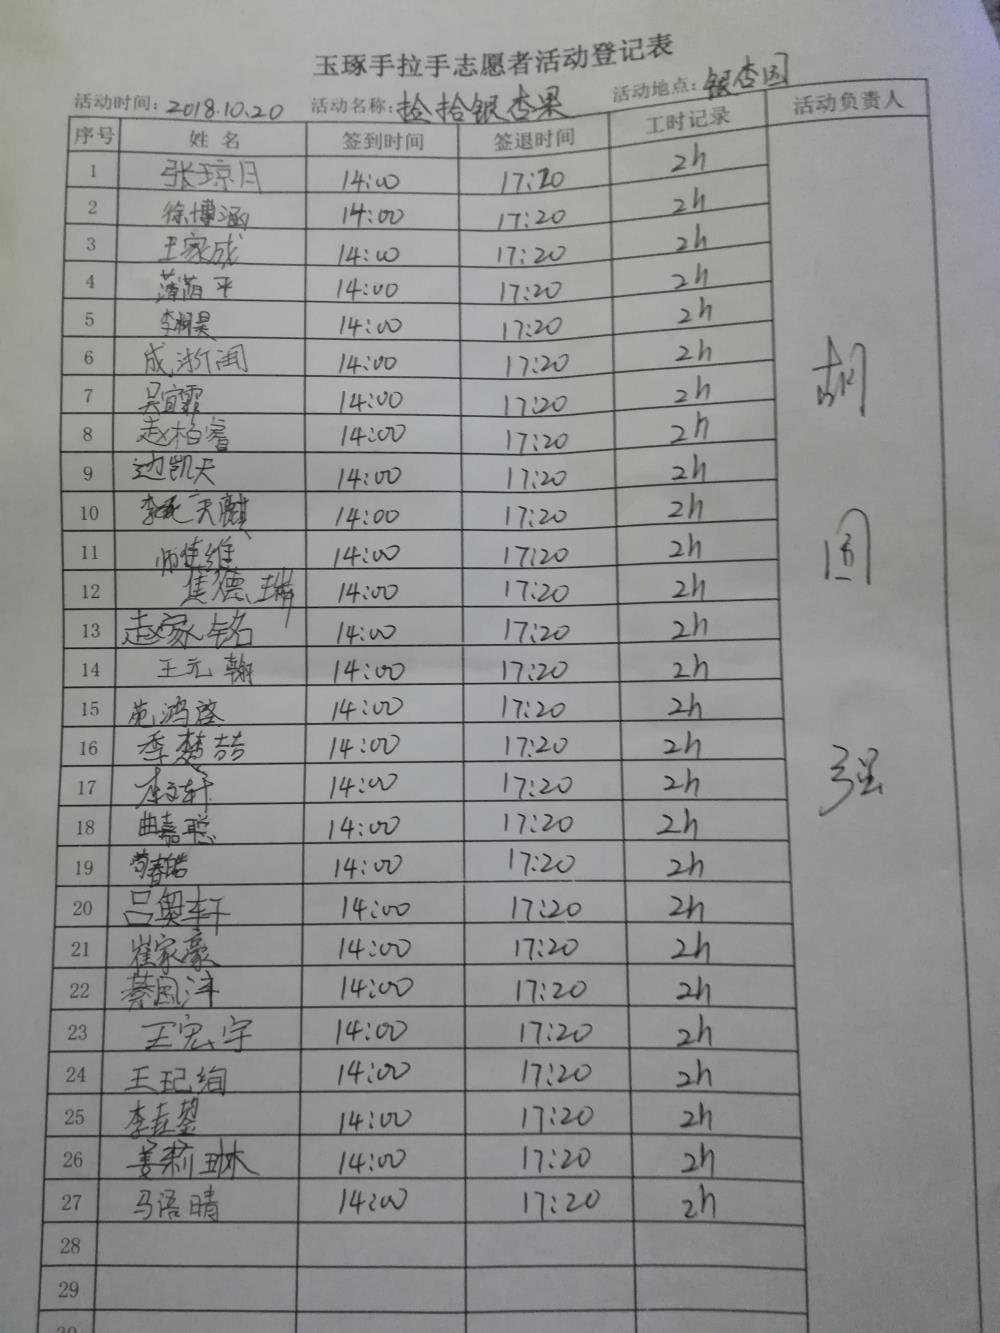 玉琢手拉手志愿者活动登记表
活动时间：2018.10.20 活动名称：捡拾银杏果 活动地点：银杏园
序号 姓名 签到时间 签退时间 工时记录 活动负责人
1 张琼月 14:00 17:20 2h
2 徐博涵 14:00 17:20 2h
3 王家成 14:00 17:20 2h
4 薄荫平 14:00 17:20 2h
5 李桐昊 14:00 17:20 2h
6 成浙闽 14:00 17:20 2h
7 吴宜霏 14:00 17:20 2h
8 赵柏睿 14:00 17:20 2h
9 边凯天 14:00 17:20 2h
10 李天麒 14:00 17:20 2h
11 师建维 14:00 17:20 2h
12 焦德瑞 14:00 17:20 2h
13 赵家铭 14:00 17:20 2h
14 王元翰 14:00 17:20 2h
15 苑鸿啓 14:00 17:20 2h
16 季楚喆 14:00 17:20 2h
17 李文轩 14:00 17:20 2h
18 曲嘉聪 14:00 17:20 2h
19 苟春皓 14:00 17:20 2h
20 吕奥轩 14:00 17:20 2h
21 崔家豪 14:00 17:20 2h
22 綦国沣 14:00 17:20 2h
23 王宏宇 14:00 17:20 2h
24 王玘绚 14:00 17:20 2h
25 李垚 14:00 17:20 2h
26 姜莉琳 14:00 17:20 2h
27 马语晴 14:00 17:20 2h
28
29
30
胡
强